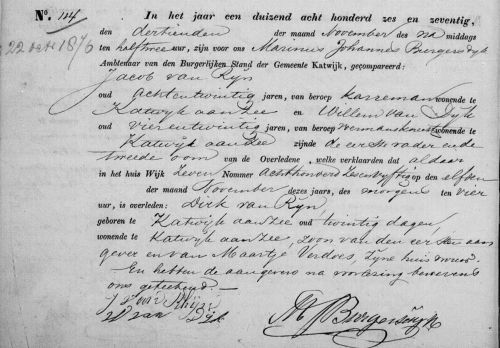 No. 114. In het jaar een duizend acht honderd zes en zeventig,
22 oct 1876 den dertienden der maand November des na middags
ten half twee ure, zijn voor ons Marinus Johannes Burgersdyk
Ambtenaar van den Burgerlijken Stand der Gemeente Katwijk, gecompareerd:
Jacob van Ryn
oud achtentwintig jaren, van beroep karreman wonende te
Katwyk aan Zee en Willem van Dyk
oud vierentwintig jaren, van beroep wonende te
Katwyk aan Zee zijnde de eerste vader en de
tweede oom van de Overledene, welke verklaarden dat aldaar
in het huis Wijk Zeven Nommer Achthonderd Zesenvyftig op den elfden
der maand November dezes jaars, des morgens ten vier
ure, is overleden: Dirk van Ryn
geboren te Katwyk aan Zee oud twintig dagen,
wonende te Katwyk aan Zee, zoon van den eersten aan
gever en van Maartje Verdoes, zyne huisvrouw.
En hebben de aangevers na voorlezing benevens
ons geteekend.
J van Rhijn
W van Dijk MJBurgersdyk